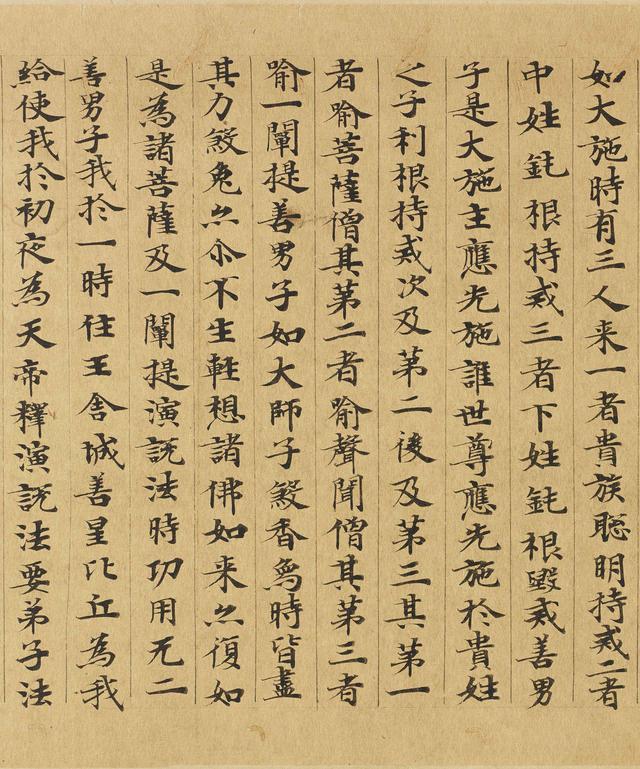 如大施時有三人来一者貴族聡明持戒二者
中姓鈍根持戒三者下姓鈍根毀戒善男
子是大施主應先施誰世尊應先施扵貴姓
之子利根持戒次及第二後及第三其第一
者喻菩薩僧其第二者喻聲聞僧其第三者
喻一闡提善男子如大師子煞香爲時皆盡
其力煞兔亦尒不生軽想諸佛如来亦復如
是為諸菩薩及一闡提演說法時功用无二
善男子我扵一時住王舍城善星比丘為我
給使我扵初夜為天帝釋演說法要弟子法